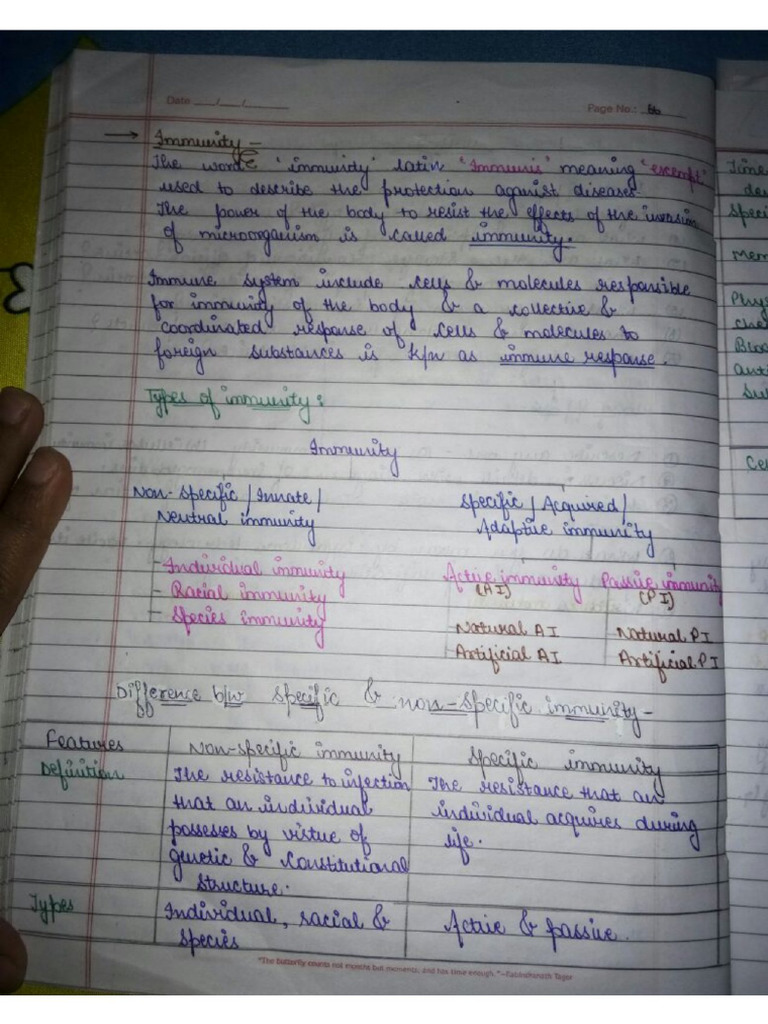 Date ___/___/______
Page No.:
→ Immunity -
The word 'immunity' latin 'Immunis' meaning "exempt"
used to describe the protection against diseases.
The power of the body to resist the effects of the invasion
of microorganism is called immunity.
Immune system include cells & molecules responsible
for immunity of the body & a collective &
coordinated response of cells & molecules to
foreign substances is k/n as immune response.
Types of immunity:
Immunity
Non-specific / Innate /
Neutral immunity
Specific / Acquired /
Adaptive immunity
Individual immunity
- Racial immunity
- Species immunity
Active immunity
(AI)
Natural AI
Artificial AI
Passive immunity
(PI)
Natural PI
Artificial PI
Difference b/w specific & non-specific immunity -
Features
Non-specific immunity
Specific immunity
Definition
The resistance to infection
that an individual
possesses by virtue of
genetic & constitutional
structure.
The resistance that an
individual acquires during
life.
Types
Individual, racial &
species
Active & passive.
"The butterfly counts not months but moments, and has time enough." ~Rabindranath Tagor
Time
de
Speci
Mem
Phys
che
Bloo
anti
Su
Ce